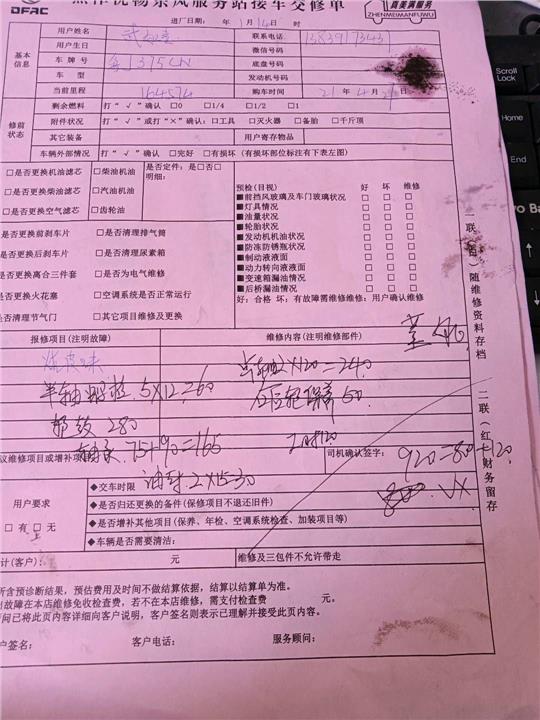 DFAC
务站接车交修单
真美满服务
ZHENMEIMANFUWU
进厂日期: 年 1月14日 时
基本信息
用户姓名
联系电话
15839173431
用户生日
微信号码
车牌号
1375CN
底盘号码
车型
发动机号码
当前里程
164574
购车时间
21年4月2 日
修前状态
剩余燃料
打“√”确认 □0 □1/4 □1/2 □1
附件状况
打“√”或打“×”确认:□工具 □灭火器 □备胎 □千斤顶
其它装备
用户寄存物品
车辆外部情况
打“√”确认 □完好 □有损坏(有损坏部位标注有下表左图)
□是否更换机油滤芯 □柴油机油
是否定件:是□否□
明细:
□是否更换柴油滤芯 □汽油机油
□是否更换空气滤芯 □齿轮油
是否更换前刹车片 □是否清理排气筒
是否更换后刹车片 □是否清理尿素箱
是否更换离合三件套 □是否为电气维修
是否更换火花塞 □空调系统是否正常运行
是否清理节气门 □其它项目维修及更换
预检(目视) 好 坏 维修
■前挡风玻璃及车门玻璃状况 □ □ □
■灯具情况 □ □ □
■油量状况 □ □ □
■轮胎状况 □ □ □
■发动机机油状况 □ □ □
■防冻防锈瓶状况 □ □ □
■制动液液面 □ □ □
■动力转向液液面 □ □ □
■变速箱漏油情况 □ □ □
■后桥漏油情况 □ □ □
好:合格 坏:有故障需维修维修:用户确认维修
一联(白)随维修资料存档
二联(红)财务留存
报修项目(注明故障)
维修内容(注明维修部件)
半轴螺栓 5X12=60
2X120=240
60
280
轴承 75+90=165
工时120
议维修项目或增补项目
司机确认签字:
920=80+120
油封 2X15=30
800 VX
用户要求
□有 □无
◆交车时限
◆是否归还更换的备件(保修项目不退还旧件)
◆是否增补其他项目(保养、年检、空调系统检查、加装项目等)
◆车辆是否需要清洁:
计(客户): 元
维修及三包件不允许带走
所含预诊断结果,预估费用及时间不做结算依据,结算以结算单为准。
出故障在本店维修免收检查费,若不在本店维修,需支付检查费 元。
问已将此页内容详细向客户说明,客户签名则表示已理解并接受此页内容。
户签名: 客户电话: 服务顾问:
Scroll Lock
Home
End